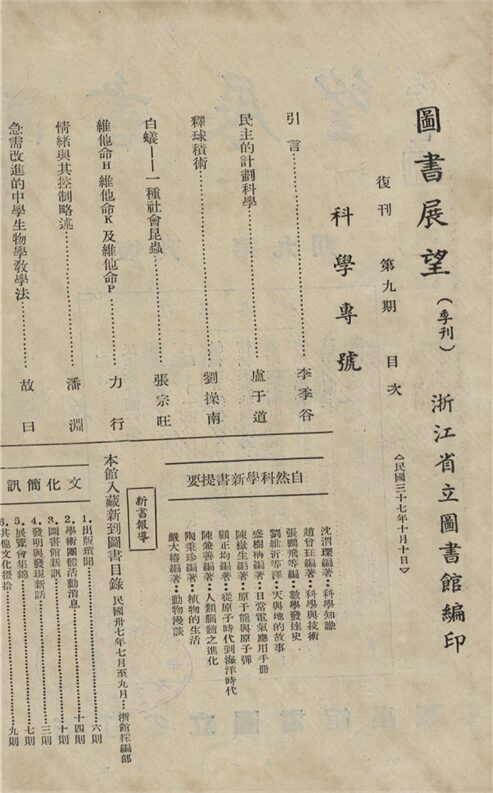 圖書展望（季刊） 浙江省立圖書館編印
復刊 第九期 目次 △民國三十七年十月十日▽
科學專號
引言……李季谷
民主的計劃科學……盧于道
釋球積術……劉操南
白蟻——一種社會昆蟲……張宗旺
維他命H 維他命K 及維他命P……力行
情緒與其控制略述……潘淵
急需改進的中學生物學教學法……故曰
自然科學新書提要
沈渭璨編著：科學知識
趙曾玨編著：科學與技術
張鵬飛等編：數學發達史
劉維沂等譯：天與地的故事
盛樹柟編著：日常電氣應用手冊
陳嶽生編著：原子能與原子彈
顧正均編著：從原子時代到海洋時代
陳兼善編著：人類腦髓之進化
陶秉珍編著：植物的生活
嚴大椿編著：動物漫談
新書報導
本館入藏新到圖書目錄 民國卅七年七月至九月…浙館採編部
文化簡訊
1.出版瑣聞……六則
2.學術團體活動消息……十四則
3.圖書館新訊……十則
4.發明與發現新話……三則
5.展覽會集錦……七則
6.其他文化摭拾……九則